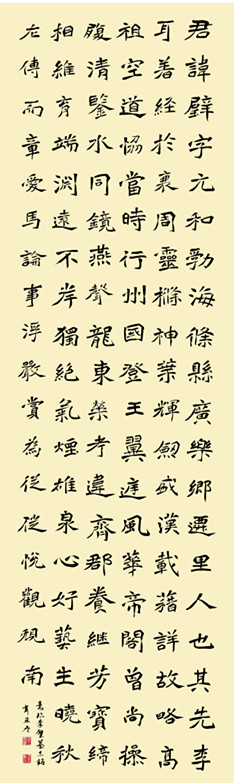 君諱璧字元和勃海條縣廣樂鄉遷里人也其先李
耳著經於衰周靈櫷神葉輝劒威漢載籍詳故略高
祖空道協當時行州國登王翼庭風華帝閣曾尚操
腹清鑒水同鏡燕聲龍東榮考違齊郡養継芳寶締
相維育端淵遠不岸獨絕氣煙雄泉心好藝生曉秋
左傳而章愛馬論事浮散賞為從從悅觀視南
意臨李璧墓志銘